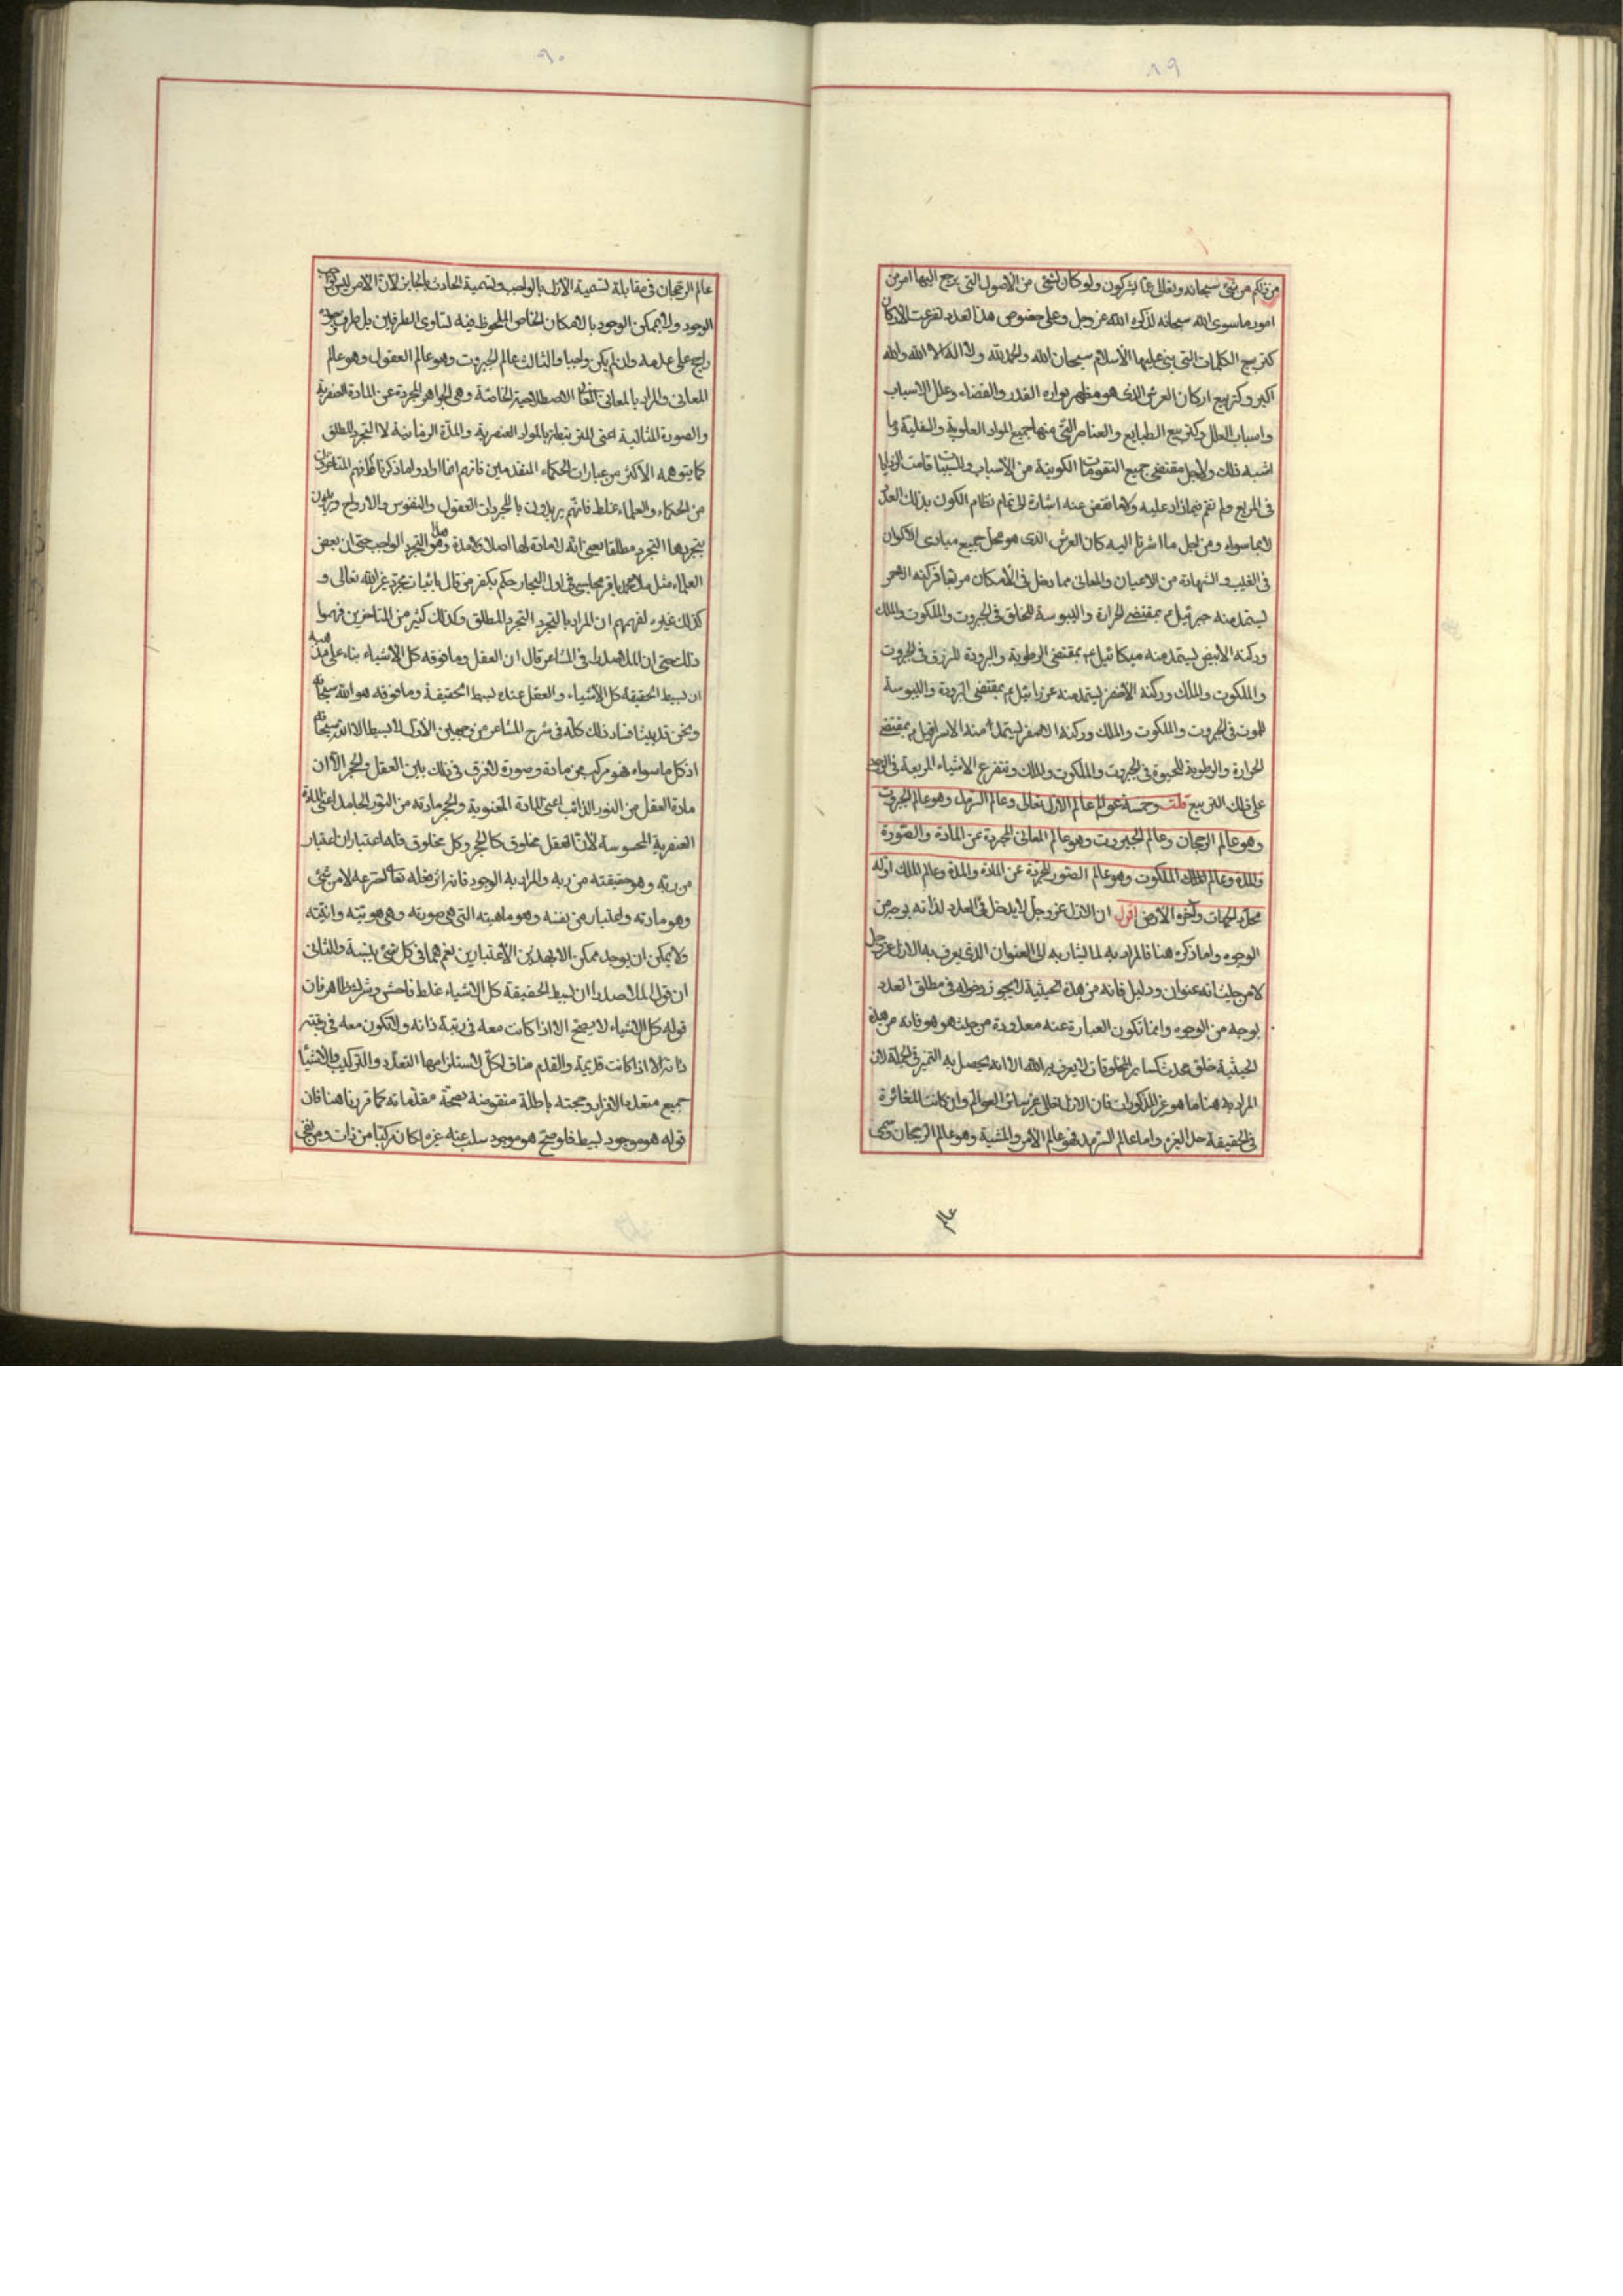 ٨٩
من ذلكم من شئ سبحانه وتعالى عما يشركون ولو كان لشئ من الأصول التى يرجع اليها امر من
امور ما سوى الله سبحانه لذكره الله عز وجل وعلى خصوص هذا العدد تفرعت الاركان
كتربيع الكلمات التى بنى عليها الأسلام سبحان الله والحمد لله ولا اله الا الله والله
اكبر وكتربيع اركان العرش الذى هو مظهر مواره القدر والقضاء وعلل الاسباب
واسباب العلل وكتربيع الطبايع والعناصر التى منها جميع المواد العلوية والسفلية وما
اشبه ذلك ولاجل مقتضى جميع التقومات الكونية من الأسباب والمسببات قامت الزوايا
فى المربع ولم تقم فيما زاد عليه ولا ما نقص عنه اشارة الى تمام نظام الكون بذلك العدد
لا بما سواه ومن اجل ما اشرنا اليه كان العرش الذى هو محل جميع مبادى الاكوان
فى الغيب والشهادة من الاعيان والمعانى مما دخل فى الأمكان مربعا فركنه الاحمر
يستمد منه جبرئيل ع بمقتضى الحرارة واليبوسة للخلق فى الجبروت والملكوت والملك
وركنه الابيض يستمد منه ميكائيل ع بمقتضى الرطوبة والبرودة للرزق فى الجبروت
والملكوت والملك وركنه الأخضر يستمد منه عزرائيل ع بمقتضى البرودة واليبوسة
للموت فى الجبروت والملكوت والملك وركنه الاصفر يستمد منه الاسرافيل ع بمقتضى
الحرارة والرطوبة للحيوة فى الجبروت والملكوت والملك وتتفرع الاشياء المربعة فى الوجود
على ذلك التربيع قلت وخمسة عوالم عالم الازل تعالى وعالم السرمد وهو عالم الجبروت
وهو عالم الرجحان وعالم الجبروت وهو عالم المعانى المجردة عن المادة والصورة
والمدة وعالم الملك الملكوت وهو عالم الصور المجردة عن المادة والمدة وعالم الملك اوله
محدد الجهات وآخره الأرض اقول ان الازل عز وجل لا يدخل فى العدد لذاته بوجه من
الوجوه واما ذكره هنا فالمراد به لما يشار به الى العنوان الذى يعرف به الازل عز وجل
لا من حيث انه عنوان ودليل فانه من هذه الحيثية لا يجوز دخوله فى مطلق العدد
بوجه من الوجوه وانما تكون العبارة عنه معدودة من حيث هو هو فانه من هذه
الحيثية خلق محدث كساير المخلوقات لا يعرف به الله الا انه يحصل به التميز فى الجملة لان
المراد به هنا ما هو غير المذكورات فان الازل تعالى غير سائر العوالم وان كانت المغائرة
فى الحقيقة حد الغيره واما عالم السرمد فهو عالم الأمر والمشية وهو عالم الرجحان وسمى
عالم
٩٠
عالم الرجحان فى مقابلة تسمية الأزل بالواجب وتسمية الحادث بالجايز لان الأمر ليس بواجب
الوجود ولا بممكن الوجود بالامكان الخاص الملحوظ فيه تساوى الطرفين بل طرف وجوده
راجح على عدمه وان لم يكن واجبا والثالث عالم الجبروت وهو عالم العقول وهو عالم
المعانى والمراد بالمعانى المعانى الاصطلاحية الخاصة وهى الجواهر المجردة عن المادة العنصرية
والصورة المثالية اعنى التى بالمواد العنصرية والمدة الزمانية لا التجرد المطلق
كما يتوهمه الأكثر من عبارات الحكماء المتقدمين فانهم انما ارادوا ما ذكرنا فافهم المتاخرون
من الحكماء والعلماء غلط فانهم يريدون بالمجردات العقول والنفوس والارواح ويريدون
بتجردها التجرد مطلقا يعنى انه لا مادة لها اصلا ولا مدة وهو التجرد الواجب حتى ان بعض
العلماء مثل ملا محمد باقر مجلسى فى اول البحار حكم بكفر من قال باثبات مجرد غير الله تعالى و
كذلك غيره لفهمهم ان المراد بالتجرد التجرد المطلق وكذلك كثير من المتاخرين فهموا
ذلك حتى ان الملا صدرا فى المشاعر قال ان العقل وما فوقه كل الاشياء بناء على مذهبه
ان بسيط الحقيقة كل الأشياء والعقل عنده بسيط الحقيقة وما فوقه هو الله سبحانه
ونحن قد بينا فساد ذلك كله فى شرح المشاعر من وجهين الأول لا بسيط الا الله سبحانه
اذ كل ما سواه فهو مركب من مادة وصورة لا فرق فى ذلك بين العقل والحجر الا ان
مادة العقل من النور الذائب اعنى المادة المعنوية والحجر مادته من النور الجامد اعنى المادة
العنصرية المحسوسة لأن العقل مخلوق كالحجر وكل مخلوق فله اعتباران اعتبار
من ربه وهو حقيقته من ربه والمراد به الوجود فانه اثر فعله تعالى اخترعه لا من شئ
وهو مادته واعتبار من نفسه وهو ماهيته التى هى صورته وهى هويته وانيته
ولا يمكن ان يوجد ممكن الا بهذين الأعتبارين نعم هما فى كل شئ بنسبة والثانى
ان قول الملا صدرا ان بسيط الحقيقة كل الاشياء غلط فاحش وشرك ظاهر فان
قوله كل الاشياء لا يصح الا اذا كانت معه فى رتبة ذاته ولا تكون معه فى رتبة
ذاته الا اذا كانت قديمة والقدم مناف لكل لاستلزامها التعدد والتركيب والاشياء
جميع متعددة الافراد وحجته باطلة منقوضة بصحة مقدماته كما قررنا هنا فان
قوله هو موجود بسيط فلو صح هو موجود سلب عنه غيره لكان مركبا من ذات ومن نفى